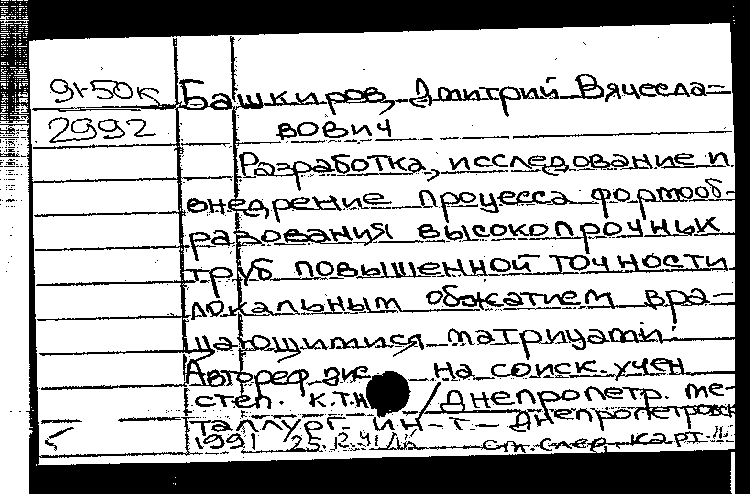 91-50к Башкиров, Дмитрий Вячесла=
2992 вович
Разработка, исследование и
внедрение процесса формооб-
разования высокопрочных
труб повышенной точности
локальным обжатием вра-
щающимися матрицами:
Автореф. дис на соиск. учен
степ. к.т.н /Днепропетр. ме-
таллург. ин-т.- Днепропетровск
1991 см. след. карт.